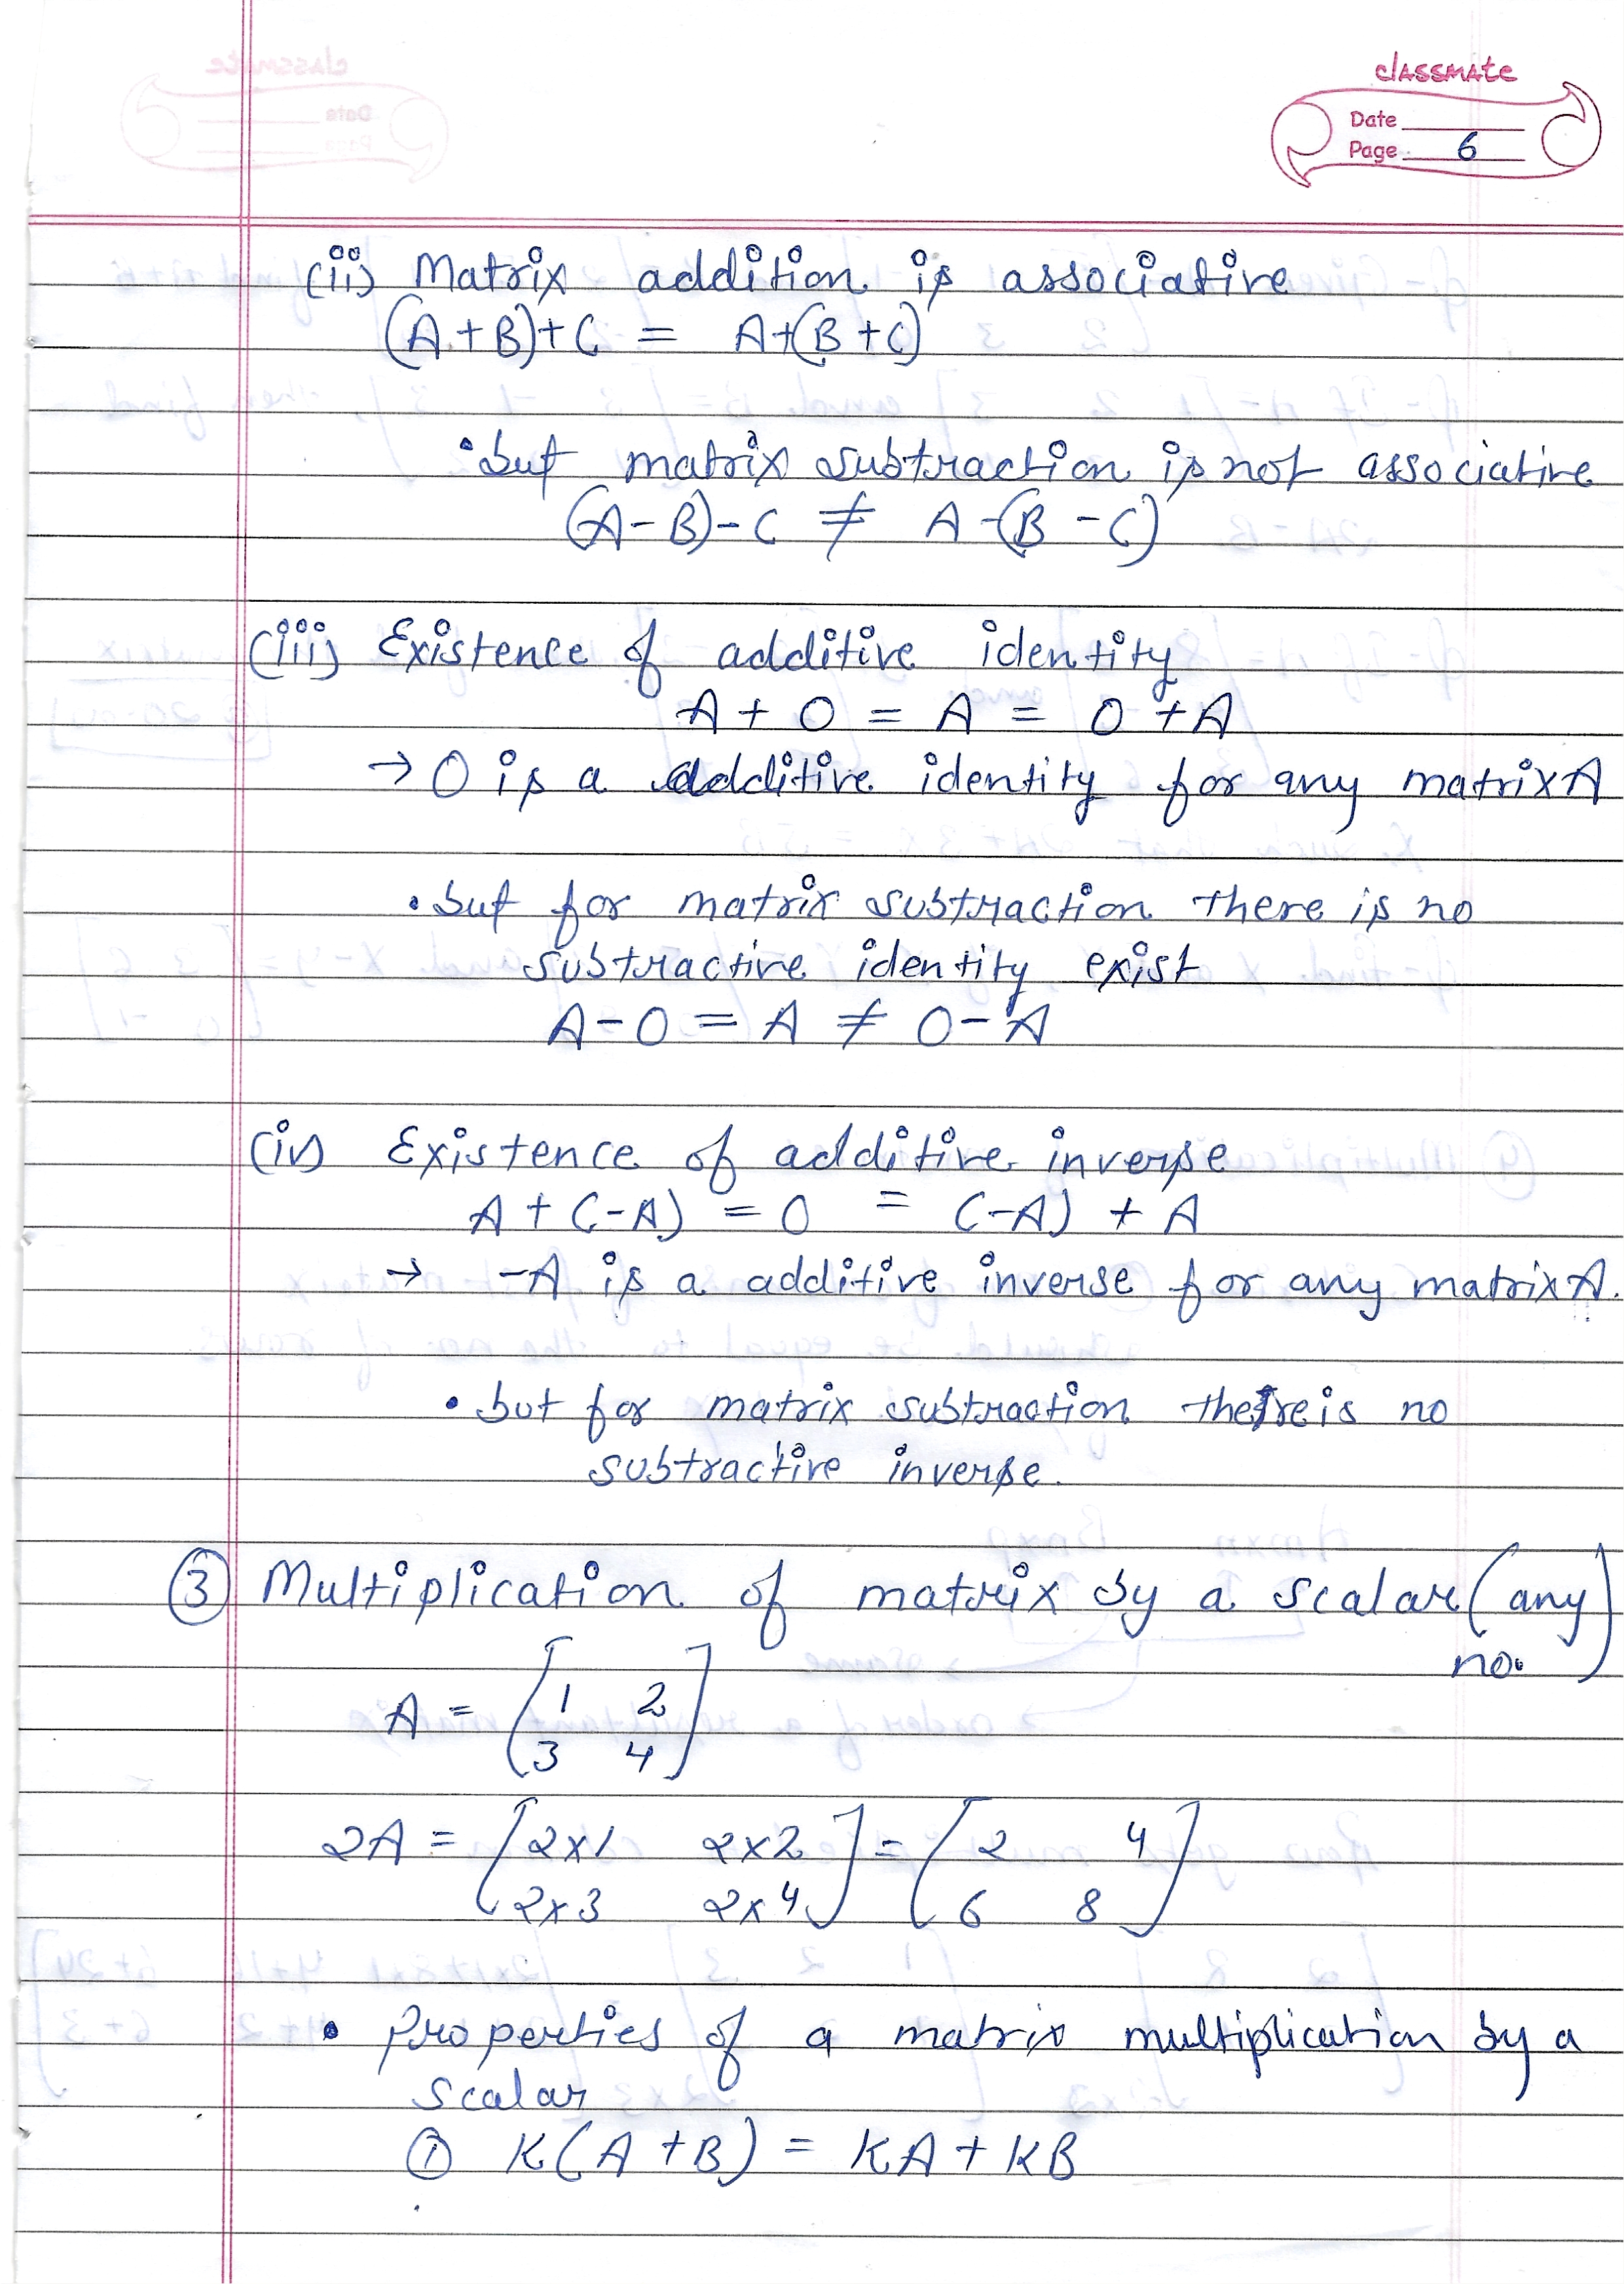 classmate
Date
Page 6
(ii) Matrix addition is associative
(A+B)+C = A+(B+C)
• but matrix subtraction is not associative
(A-B)-C ≠ A-(B-C)
(iii) Existence of additive identity
A + O = A = O + A
→ O is a additive identity for any matrix A
• but for matrix subtraction there is no
subtractive identity exist
A-O = A ≠ O-A
(iv) Existence of additive inverse
A + (-A) = O = (-A) + A
→ -A is a additive inverse for any matrix A.
• but for matrix subtraction there is no
subtractive inverse.
③ Multiplication of matrix by a scalar (any
no.)
A = [1 2
3 4]
2A = [2x1 2x2] = [2 4]
[2x3 2x4] [6 8]
• Properties of a matrix multiplication by a
scalar
① K(A+B) = KA + KB